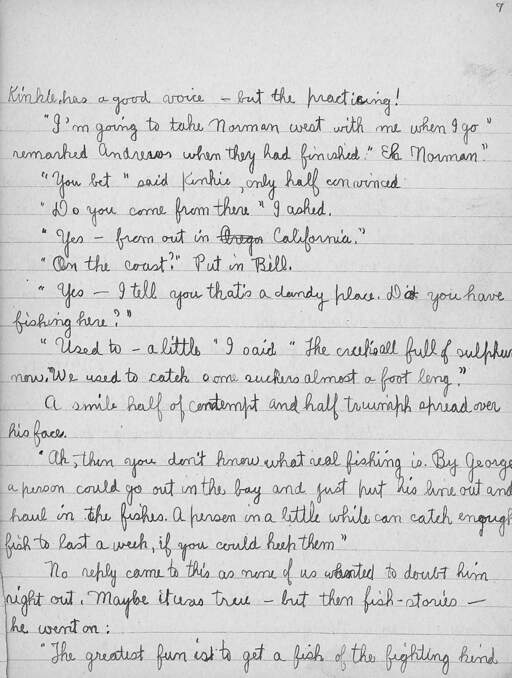 9
Kinkie, has a good voice – but the practicing!
"I'm going to take Norman west with me when I go"
remarked Andrews when they had finished. "Eh Norman."
"You bet" said Kinkie, only half convinced
"Do you come from there" I asked.
"Yes – from out in Oregon California."
"On the coast?" Put in Bill.
"Yes – I tell you that's a dandy place. Do you have
fishing here?"
"Used to – a little" I said "The creek's all full of sulphur
now. "We used to catch some suckers almost a foot long."
A smile half of contempt and half truimph spread over
his face.
"Ah, then you don't know what real fishing is. By George
a person could go out in the bay and just put his line out and
haul in the fishes. A person in a little while can catch enough
fish to last a week, if you could keep them"
No reply came to this as none of us wanted to doubt him
right out. Maybe it was true – but then fish-stories –
he went on:
"The greatest fun is to get a fish of the fighting kind